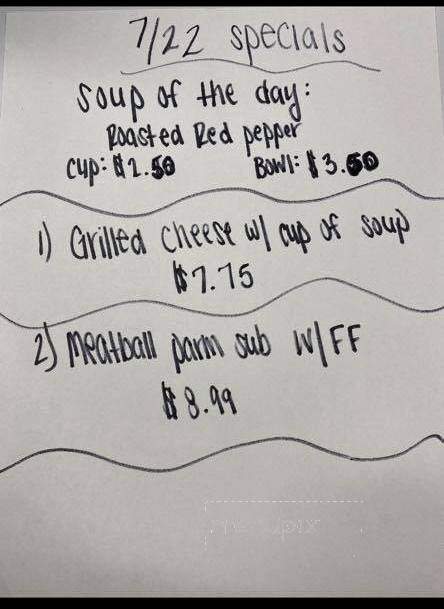 7/22 specials
Soup of the day:
Roasted Red pepper
Cup: $2.50 Bowl: $3.60
1) Grilled Cheese w/ cup of soup
$7.75
2) Meatball parm sub W/FF
$8.99